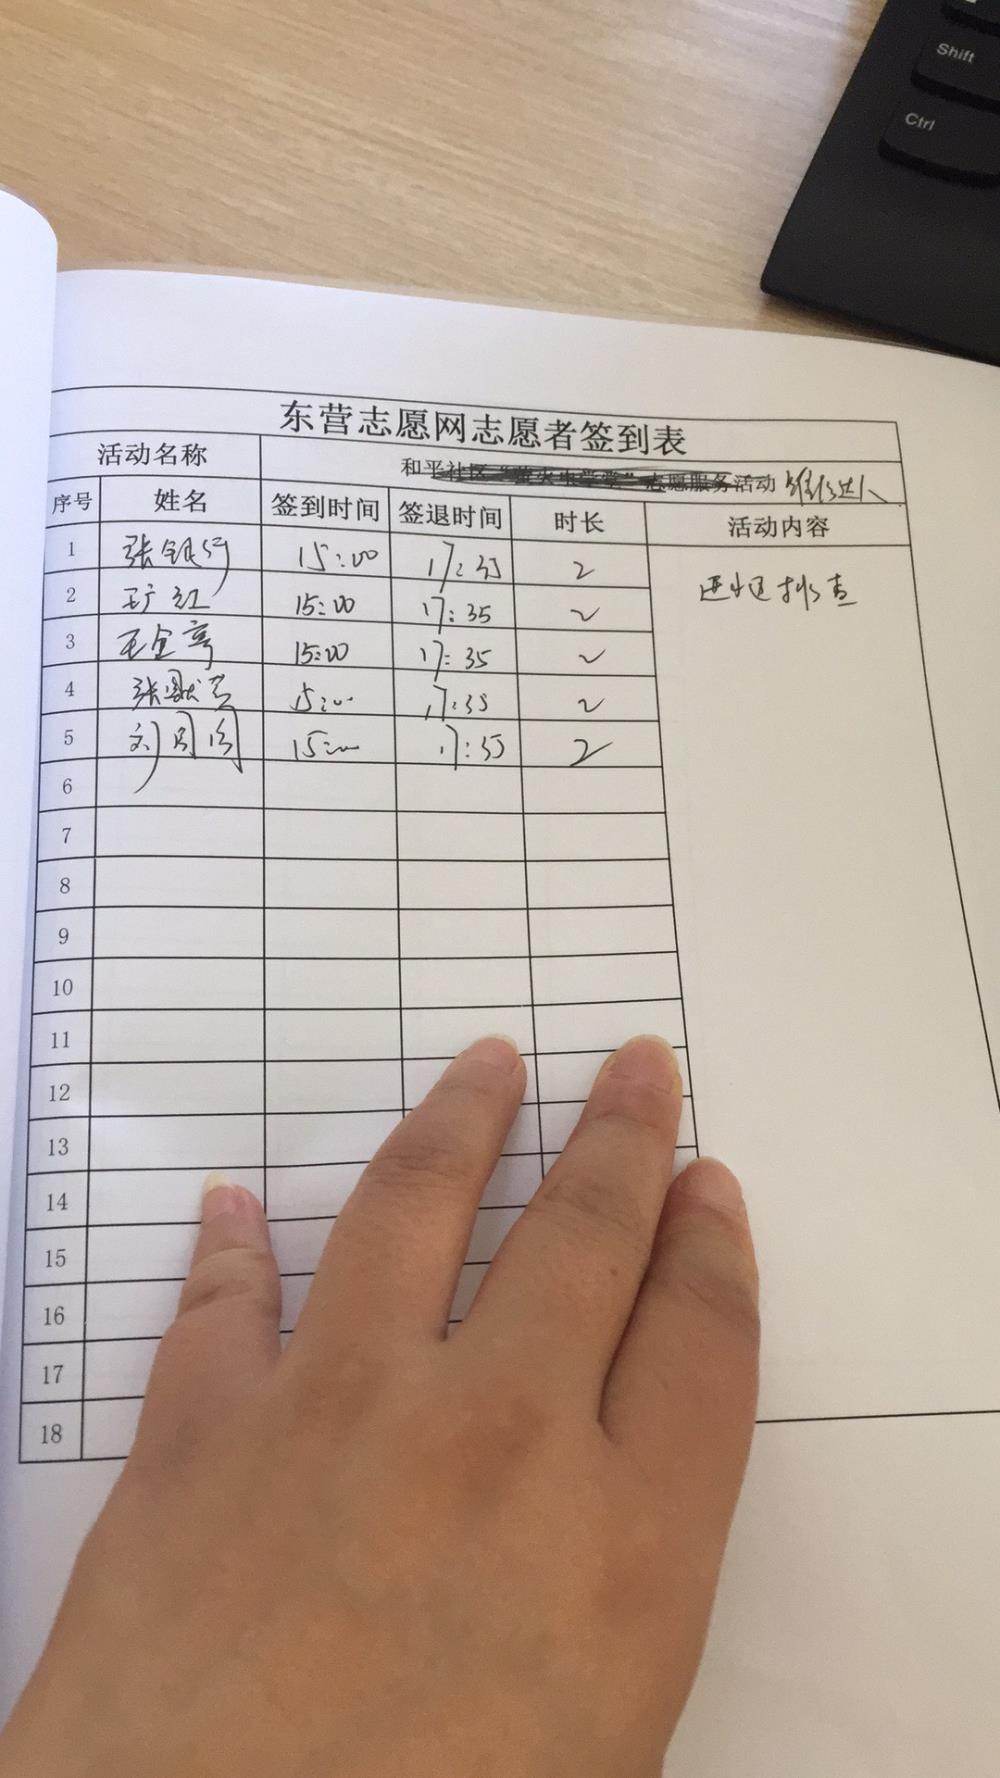 Shift
Ctrl
东营志愿网志愿者签到表
活动名称 和平社区“萤火虫学堂”志愿服务活动
序号 姓名 签到时间 签退时间 时长 活动内容
1 15:00 17:35 2
2 15:00 17:35 2 进门排查
3 15:00 17:35 2
4 15:00 17:35 2
5 15:00 17:35 2
6
7
8
9
10
11
12
13
14
15
16
17
18